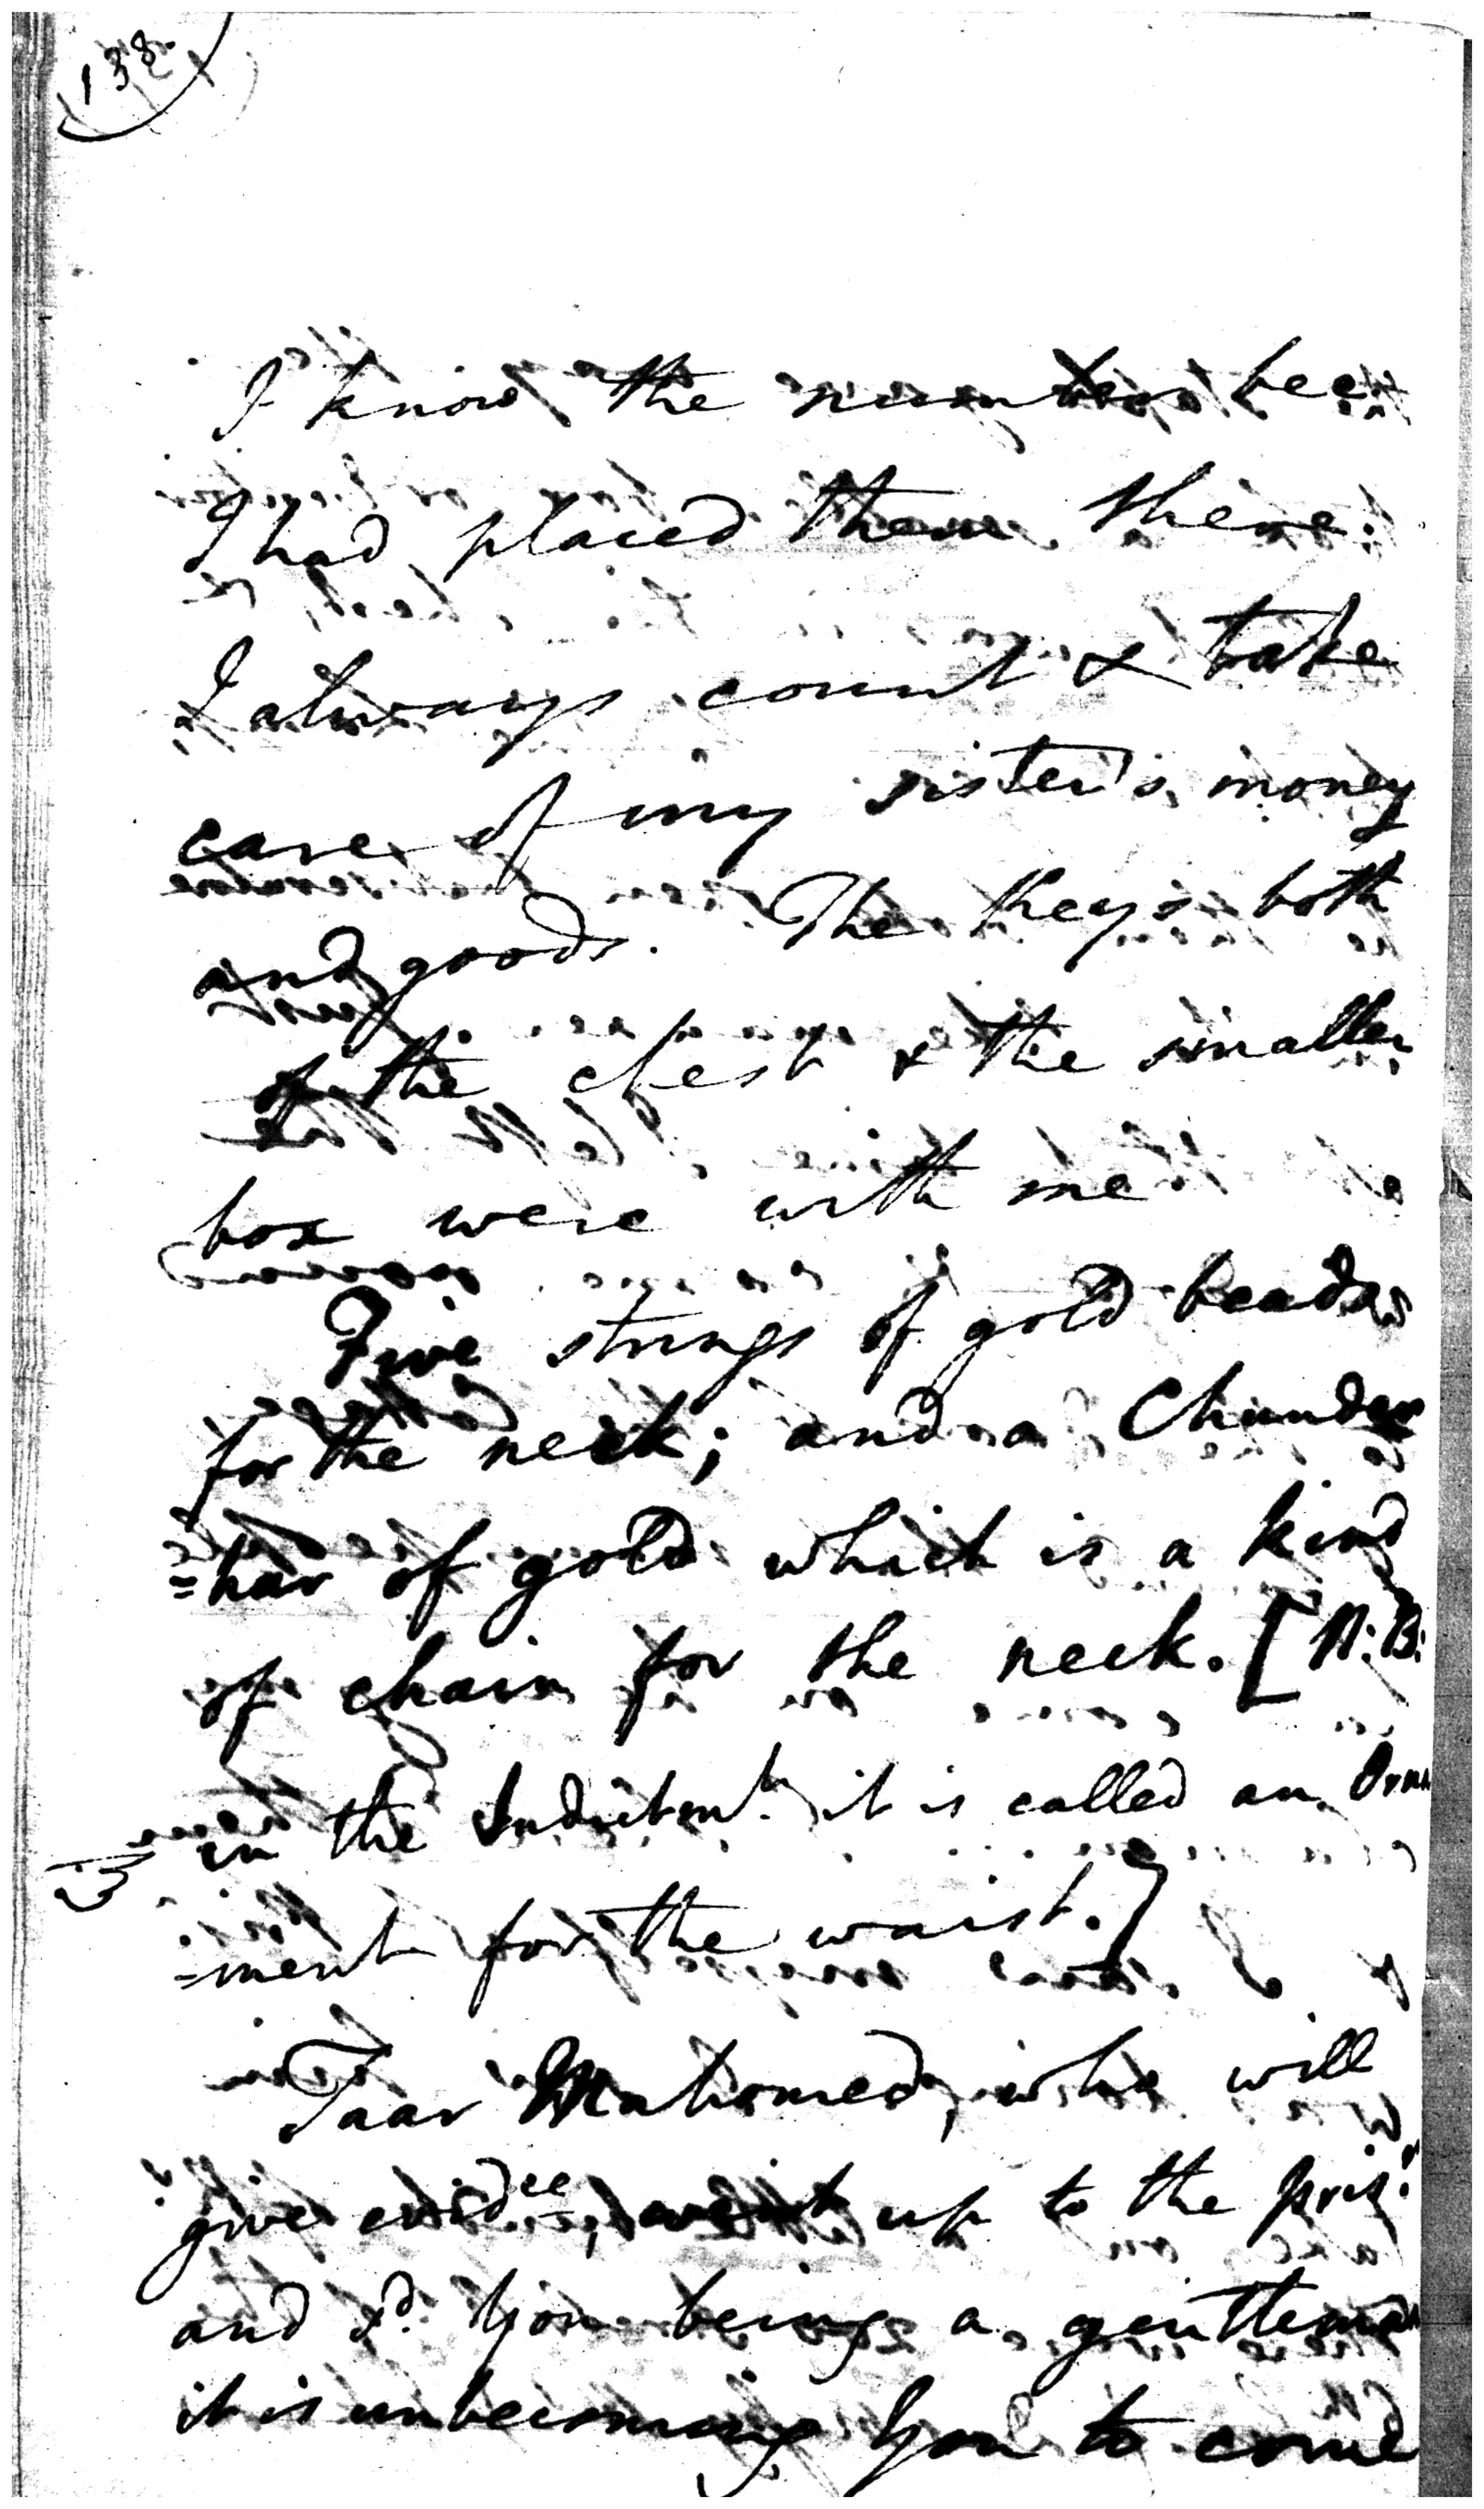 138
I know the number bec.
I had placed them there.
I always count & take
care of my sister's money
and goods. The keys both
of the chest & the smaller
box were with me
Five strings of gold beads
for the neck; and a Chunder
=har of gold which is a kind
of chain for the neck. [N:B:
in the Indictmt. it is called an Orna
=ment for the waist.]
Jaar Mahomed, who will
give evidce, went up to the prisr.
and sd. You being a gentleman
it is unbecoming You to come